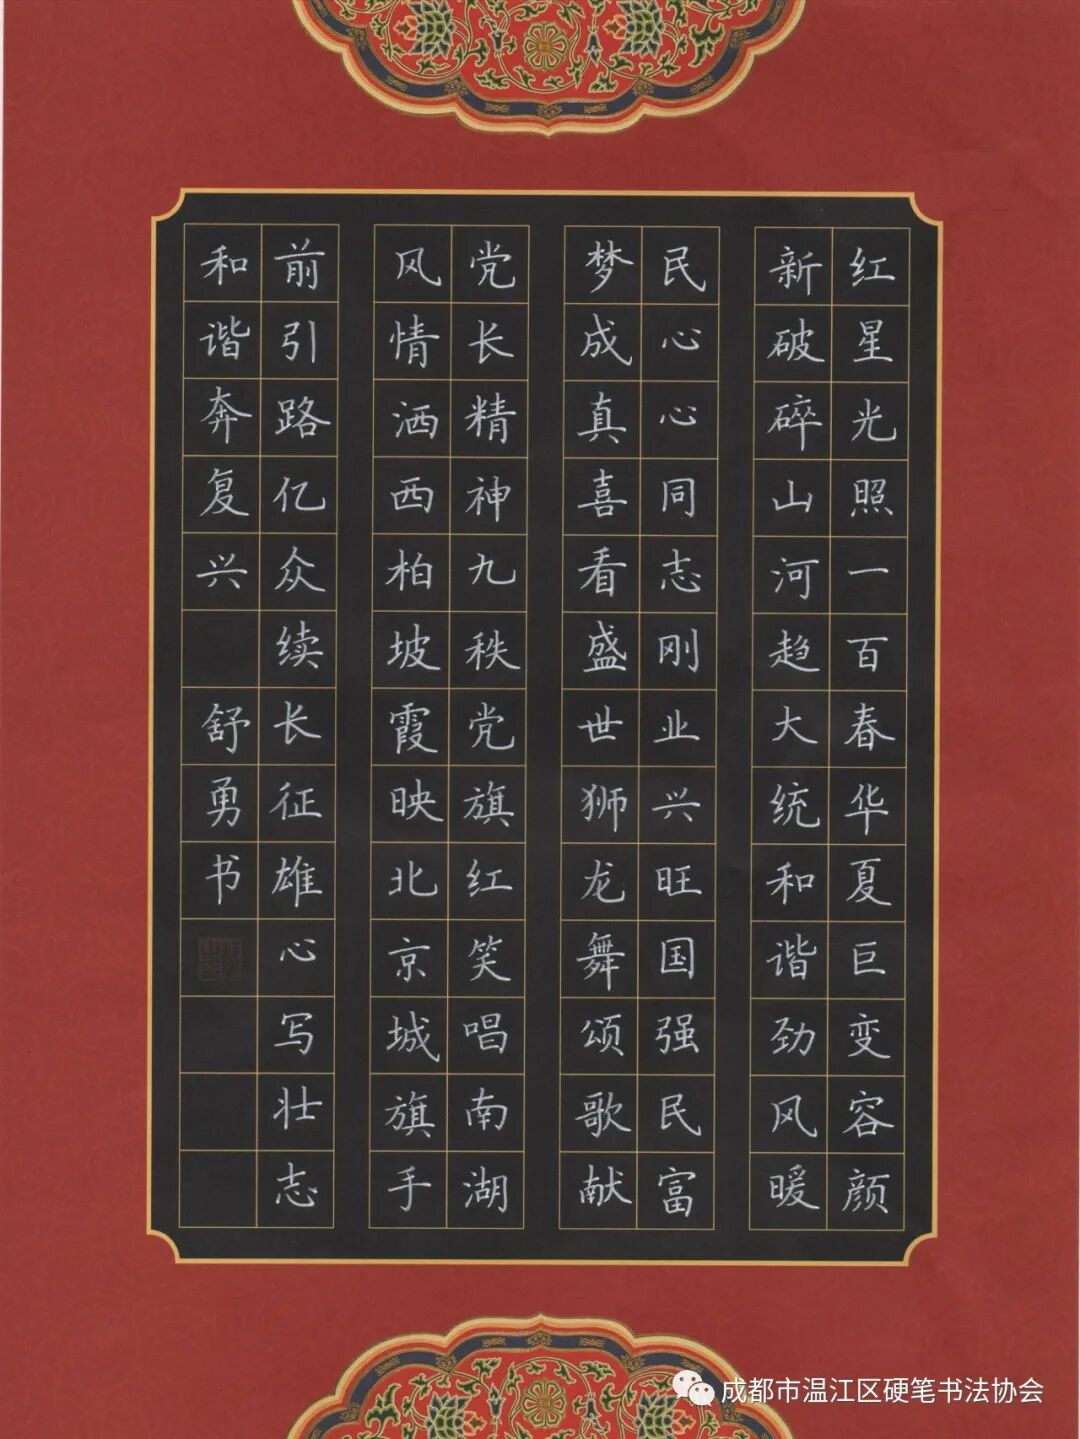 红星光照一百春华夏巨变容颜
新破碎山河趋大统和谐劲风暖
民心心同志刚业兴旺国强民富
梦成真喜看盛世狮龙舞颂歌献
党长精神九秩党旗红笑唱南湖
风情洒西柏坡霞映北京城旗手
前引路亿众续长征雄心写壮志
和谐奔复兴 舒勇书
成都市温江区硬笔书法协会